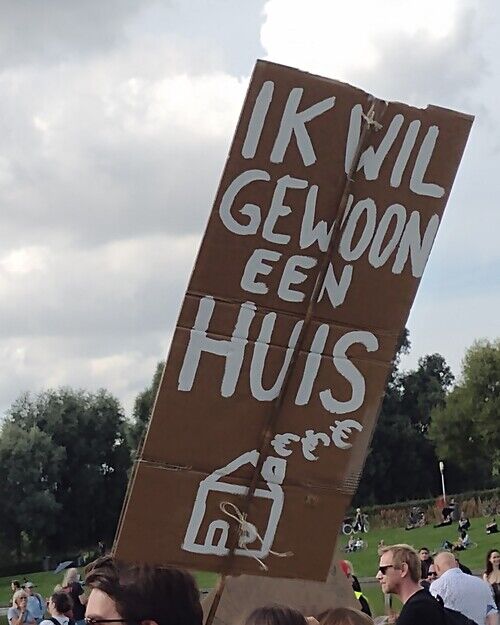 IK WIL
GEWOON
EEN
HUIS
€€€